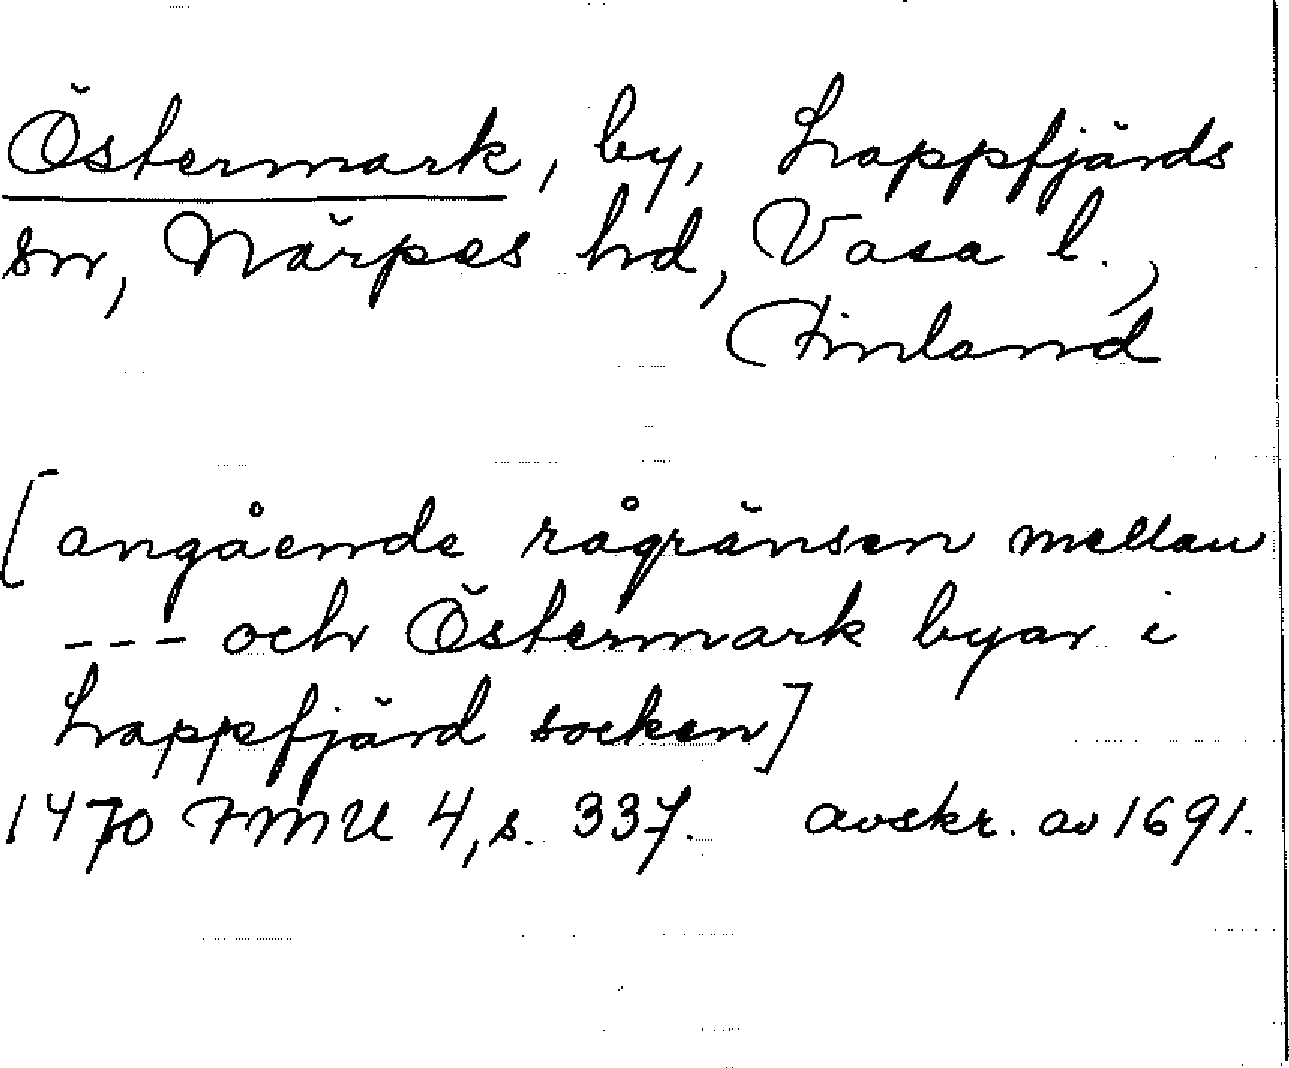 Östermark, by, Lappfjärds
sn, Närpes hd, Vasa l.,
Finland
[angående rågränsen mellan
--- och Östermark byar i
Lappfjärd socken]
1470 FMU 4, s. 337. avskr. av 1691.